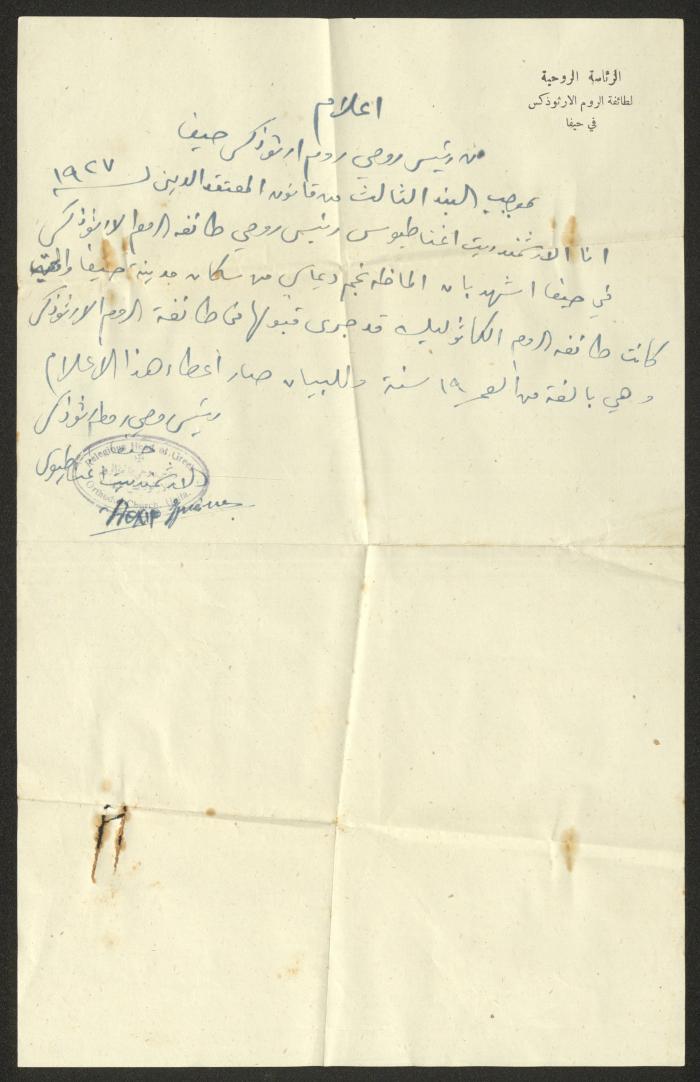 الرئاسة الروحية
لطائفة الروم الارثوذكس
في حيفا
اعلام
من رئيس روحي روم ارثوذكس حيفا
بموجب البند الثالث من قانون المعتقد الديني لـ ١٩٢٧
انا الارشمندريت اغناطيوس رئيس روحي طائفة الروم الارثوذكس
في حيفا اشهد بان الماظه نجم دعاس من سكان مدينة حيفا والتي
كانت طائفة الروم الكاثوليك قد جرى قبولها في طائفة الروم الارثوذكس
وهي بالغة من العمر ١٩ سنة وللبيان صار اعطاء هذا الاعلام
رئيس روحي روم ارثوذكس
حيفا
الارشمندريت اغناطيوس
Religious Head of Greek
Orthodox Church, Haifa.